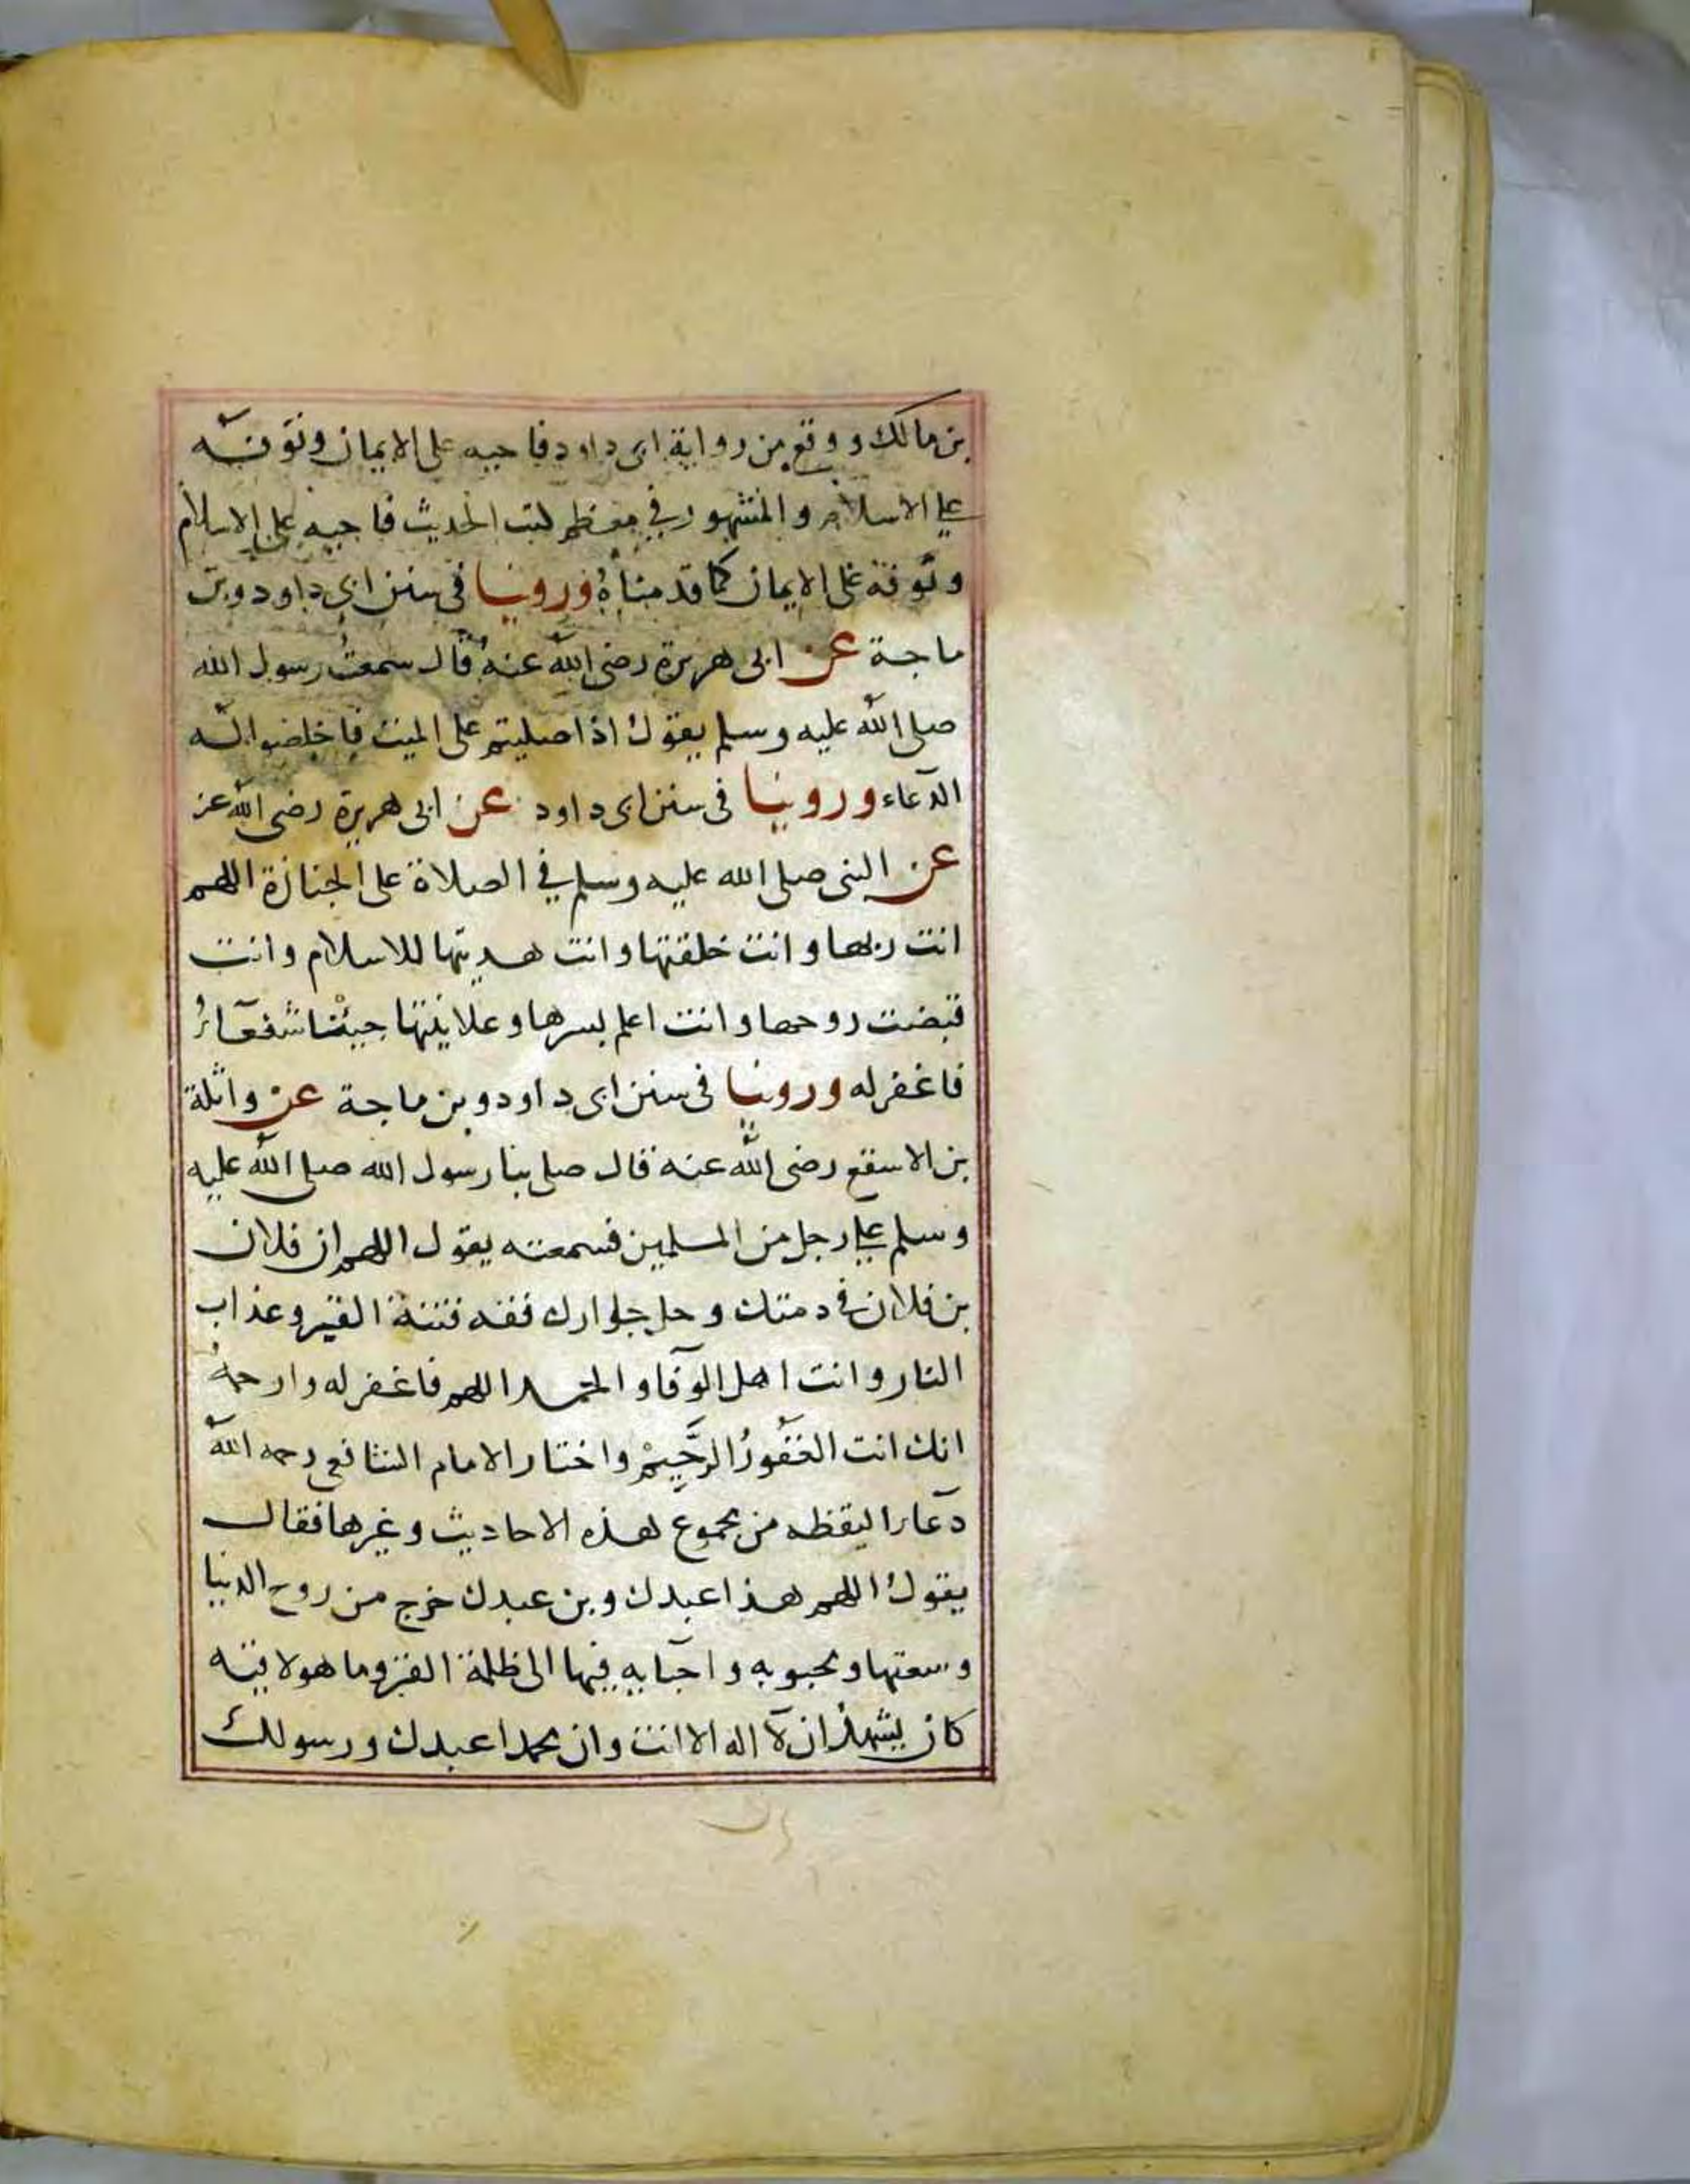 بن مالك ووقع من رواية ابي داود فاحيه على الايمان وتوفه
على الاسلام والمشهور في معظم كتب الحديث فاحيه على الاسلام
وتوفه على الايمان كما قدمناهُ وروينا في سنن ابي داود وبن
ماجة عن ابي هريرة رضى اللّه عنه قال سمعتُ رسول الله
صلى اللّه عليه وسلم يقول اذا صليتم على الميت فاخلصوا له
الدعاء وروينا في سنن ابى داود عن ابى هريرة رضى اللّه عن
عن النبى صلى الله عليه وسلم في الصلاة على الجنازة اللهم
انت ربها وانت خلقتها وانت هديتها للاسلام وانت
قبضت روحها وانت اعلم بسرها وعلانيتها جيئنا شفعآء
فاغفر له وروينا فى سنن ابى داود وبن ماجة عن واثلة
بن الاسقع رضى اللّه عنه قال صلى بنا رسول الله صلى اللّه عليه
وسلم على رجل من المسلمين فسمعته يقول اللهم ان فلان
بن فلان في دمتك وحل جلوارك فقه فتنة القبر وعذاب
النار وانت اهل الوفا والحمد اللهم فاغفر له وارحمهُ
انك انت الغَفُورُ الرَّحِيمْ واختار الامام الشافعي رحمه اللّه
دعآرا ليقظه من مجموع هذه الاحاديث وغيرها فقال
يقولُ اللهم هذا عبدك وبن عبدك خرج من روح الدنيا
وسعتها ومحبوبه واحبابه فيها الى ظلمة القبر وما هو لاقيه
كان يشهدُ ان لآ اله الا انت وان محمدا عبدك ورسولك